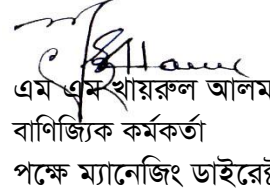 এম এম খায়রুল আলম
বাণিজ্যিক কর্মকর্তা
পক্ষে ম্যানেজিং